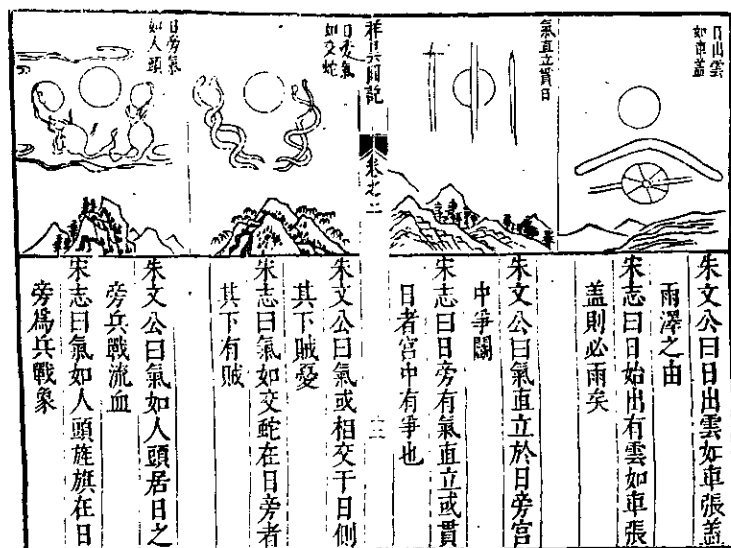 日出雲
如車盖
朱文公曰日出雲如車張盖
雨澤之由
宋志曰日始出有雲如車張
盖則必雨矣
氣直立貫日
朱文公曰氣直立於日旁宮
中爭鬭
宋志曰日旁有氣直立或貫
日者宮中有爭也
祥異圖說
卷之二
日旁氣
如交蛇
朱文公曰氣或相交于日側
其下賊憂
宋志曰氣如交蛇在日旁者
其下有賊
日旁氣
如人頭
朱文公曰氣如人頭居日之
旁兵戰流血
宋志曰氣如人頭旌旗在日
旁爲兵戰象